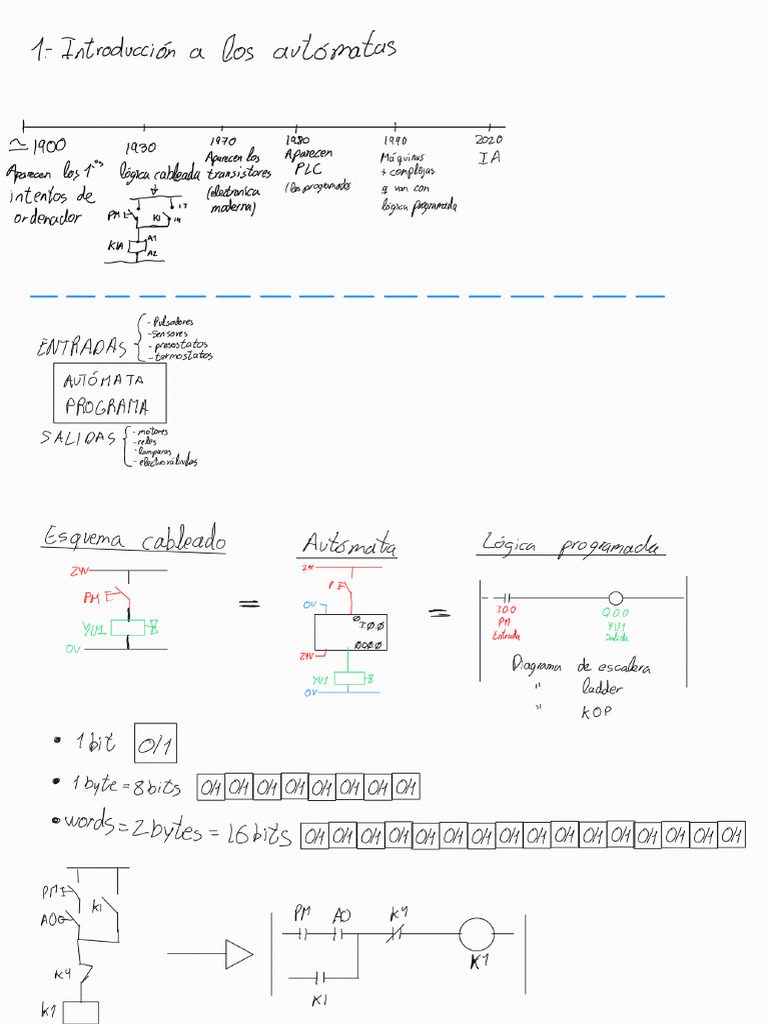 1.- Introducción a los autómatas
≃ 1900
Aparecen los 1ºs
intentos de
ordenador
1930
lógica cableada
PM
K1
13
14
K1A
A1
A2
1970
Aparecen los
transistores
(electronica
moderna)
1980
Aparecen
PLC
(los programados
1990
Máquinas
+ complejas
q van con
lógica programada
2020
IA
ENTRADAS
- Pulsadores
- Sensores
- presostatos
- termostatos
AUTÓMATA
PROGRAMA
SALIDAS
- motores
- reles
- lamparas
- electroválvulas
Esquema cableado
24V
PM
YU1
0V
=
Autómata
24V
P
0V
I00
Q0.0
24V
YU1
0V
=
Lógica programada
I0.0
PM
Entrada
Q0.0
YU1
Salida
Diagrama de escalera
" ladder
" KOP
• 1 bit 0/1
• 1 byte = 8 bits 0/1 0/1 0/1 0/1 0/1 0/1 0/1 0/1
• words = 2 bytes = 16 bits 0/1 0/1 0/1 0/1 0/1 0/1 0/1 0/1 0/1 0/1 0/1 0/1 0/1 0/1 0/1 0/1
PM
AO
K1
K4
K1
PM AO K4
K1
K1